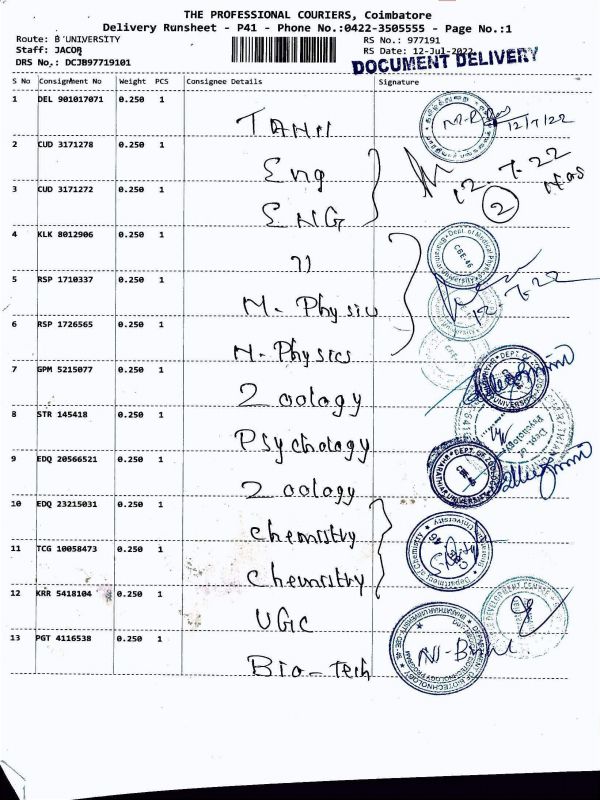 THE PROFESSIONAL COURIERS, Coimbatore
Delivery Runsheet - P41 - Phone No.:0422-3505555 - Page No.:1
Route: B UNIVERSITY RS No.: 977191
Staff: JACOB RS Date: 12-Jul-2022
DRS No.: DCJB97719101 DOCUMENT DELIVERY
S No Consignment No Weight PCS Consignee Details Signature
1 DEL 901017071 0.250 1 TAMIL 12/7/22
2 CUD 3171278 0.250 1 Eng 12-7-22
3 CUD 3171272 0.250 1 ENG 2
4 KLK 8012906 0.250 1 11 Dept. of Medical Physics Bharathiar University CBE-46
5 RSP 1710337 0.250 1 M-Physics 12-7-22
6 RSP 1726565 0.250 1 M-Physics
7 GPM 5215077 0.250 1 Zoology DEPT. OF ZOOLOGY BHARATHIAR UNIVERSITY
8 STR 145418 0.250 1 Psychology Dept. of Psychology
9 EDQ 20566521 0.250 1 Zoology DEPT. OF ZOOLOGY BHARATHIAR UNIVERSITY
10 EDQ 23215031 0.250 1 chemistry
11 TCG 10058473 0.250 1 chemistry Department of Chemistry University
12 KRR 5418104 0.250 1 UGC DEVELOPMENT CENTRE
13 PGT 4116538 0.250 1 Bio-tech DEPARTMENT OF BIOTECHNOLOGY